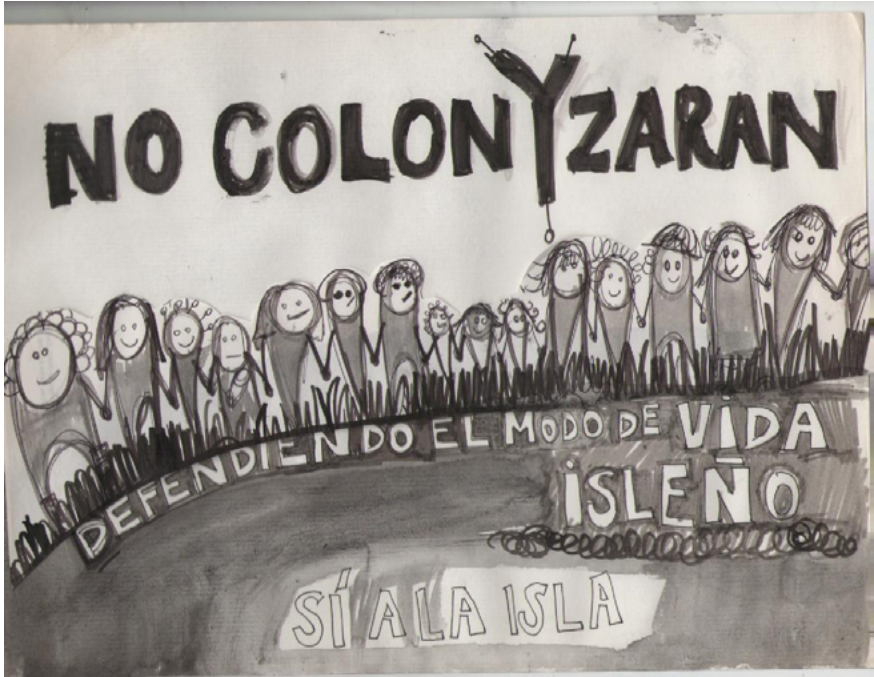 NO COLONYZARAN
DEFENDIENDO EL MODO DE VIDA
ISLEÑO
SÍ A LA ISLA